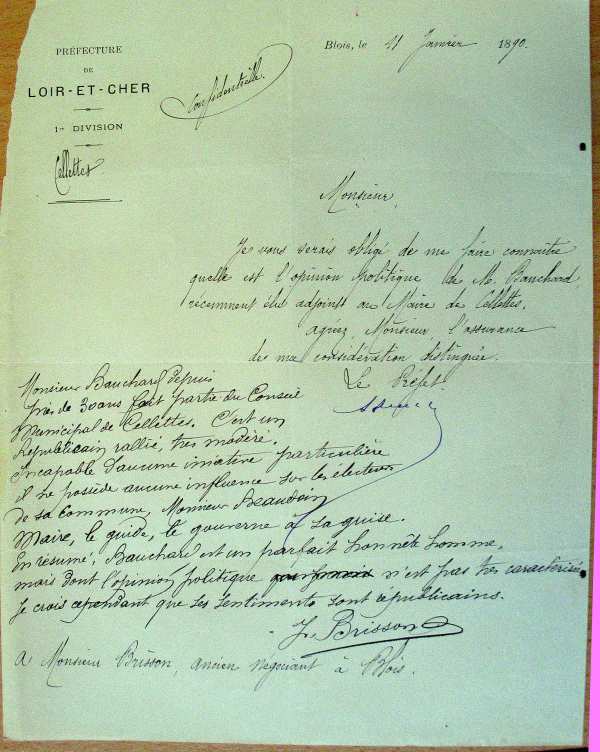 PRÉFECTURE
DE
LOIR-ET-CHER
1re DIVISION
Cellettes
Confidentielle.
Blois, le 11 Janvier 1890.
Monsieur,
Je vous serais obligé de me faire connaître
quelle est l'opinion politique de M. Bauchard,
récemment élu adjoint au Maire de Cellettes.
Agréez, Monsieur, l'assurance
de ma considération distinguée.
Le Préfet
Monsieur Bauchard depuis
près de 30 ans fait partie du Conseil
Municipal de Cellettes. C'est un
Républicain rallié, très modéré.
Incapable d'aucune iniative particulière
il ne possède aucune influence sur les électeurs
de sa commune, Monsieur Beaudoin
Maire, le guide, le gouverne à sa guise.
En résumé, Bauchard est un parfait honnête homme,
mais dont l'opinion politique n'est pas très caractérisée
Je crois cependant que ses sentiments sont républicains.
J. Brisson
A Monsieur Brisson, ancien négociant à Blois.